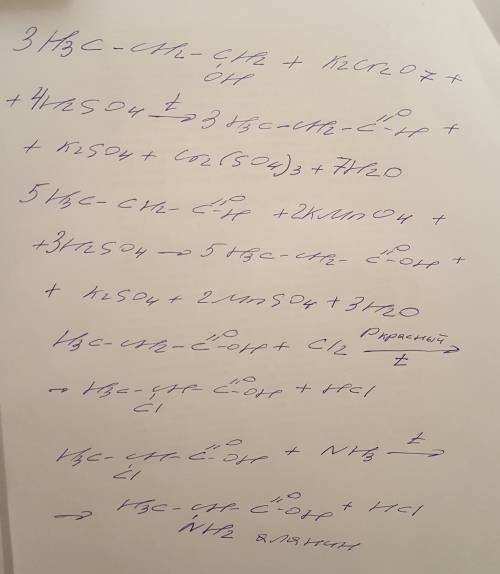 3H3C - CH2 - CH2 + K2Cr2O7 +
OH
+ 4H2SO4 t→ 3H3C - CH2 - C=O-H +
+ K2SO4 + Cr2(SO4)3 + 7H2O
5H3C - CH2 - C=O-H + 2KMnO4 +
+ 3H2SO4 → 5H3C - CH2 - C=O-OH +
+ K2SO4 + 2MnSO4 + 3H2O
H3C - CH2 - C=O-OH + Cl2 Pкрасный t→
→ H3C - CH - C=O-OH + HCl
Cl
H3C - CH - C=O-OH + NH3 t→
Cl
→ H3C - CH - C=O-OH + HCl
NH2 аланин